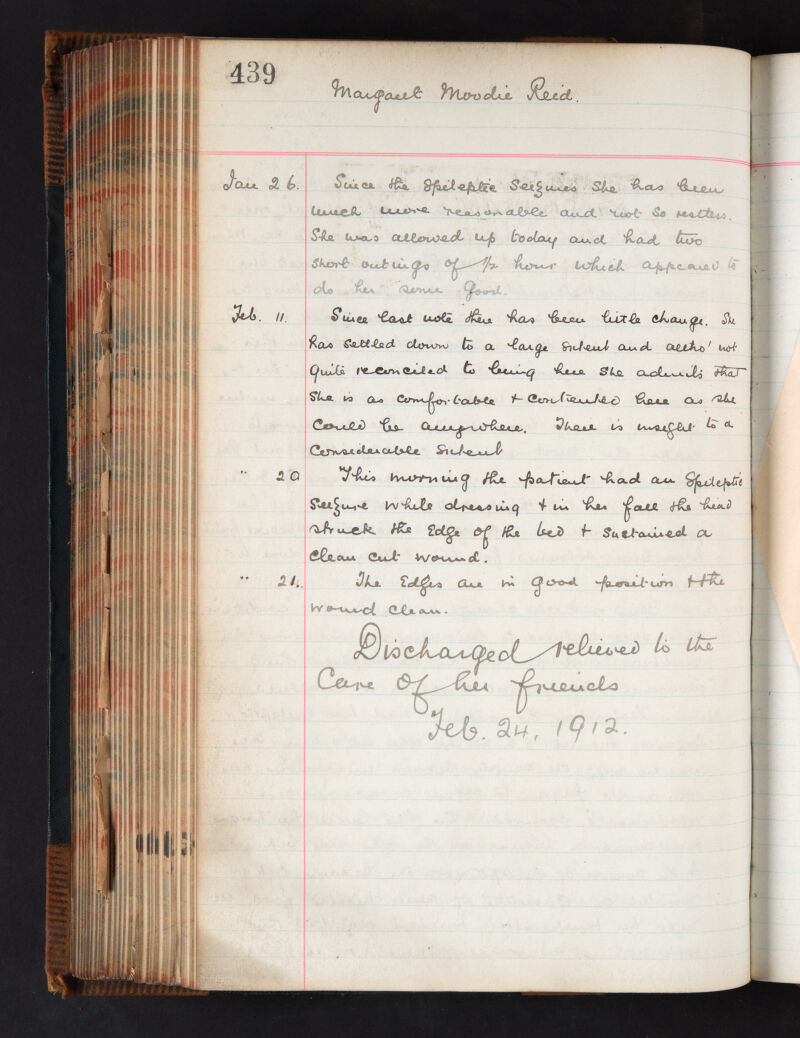 439
Margaret Moodie Reid.
Jan 26. Since the Epileptic Seizures She has been
much more reasonable and not so restless.
She was allowed up today and had two
short outings of 1/2 hour which appeared to
do her some good.
Feb. 11. Since last note there has been little change. She
has settled down to a large extent and altho' not
quite reconciled to being here she admits that
She is as comfortable + contented here as she
could be anywhere. There is insight to a
Considerable extent
" 20 This morning the patient had an Epileptic
Seizure while dressing + in her fall the head
struck the Edge of the bed + sustained a
clean cut wound.
" 21. The Edges are in good position + the
wound clean.
Discharged relieved to the
Care of her friends
Feb. 24, 1912.